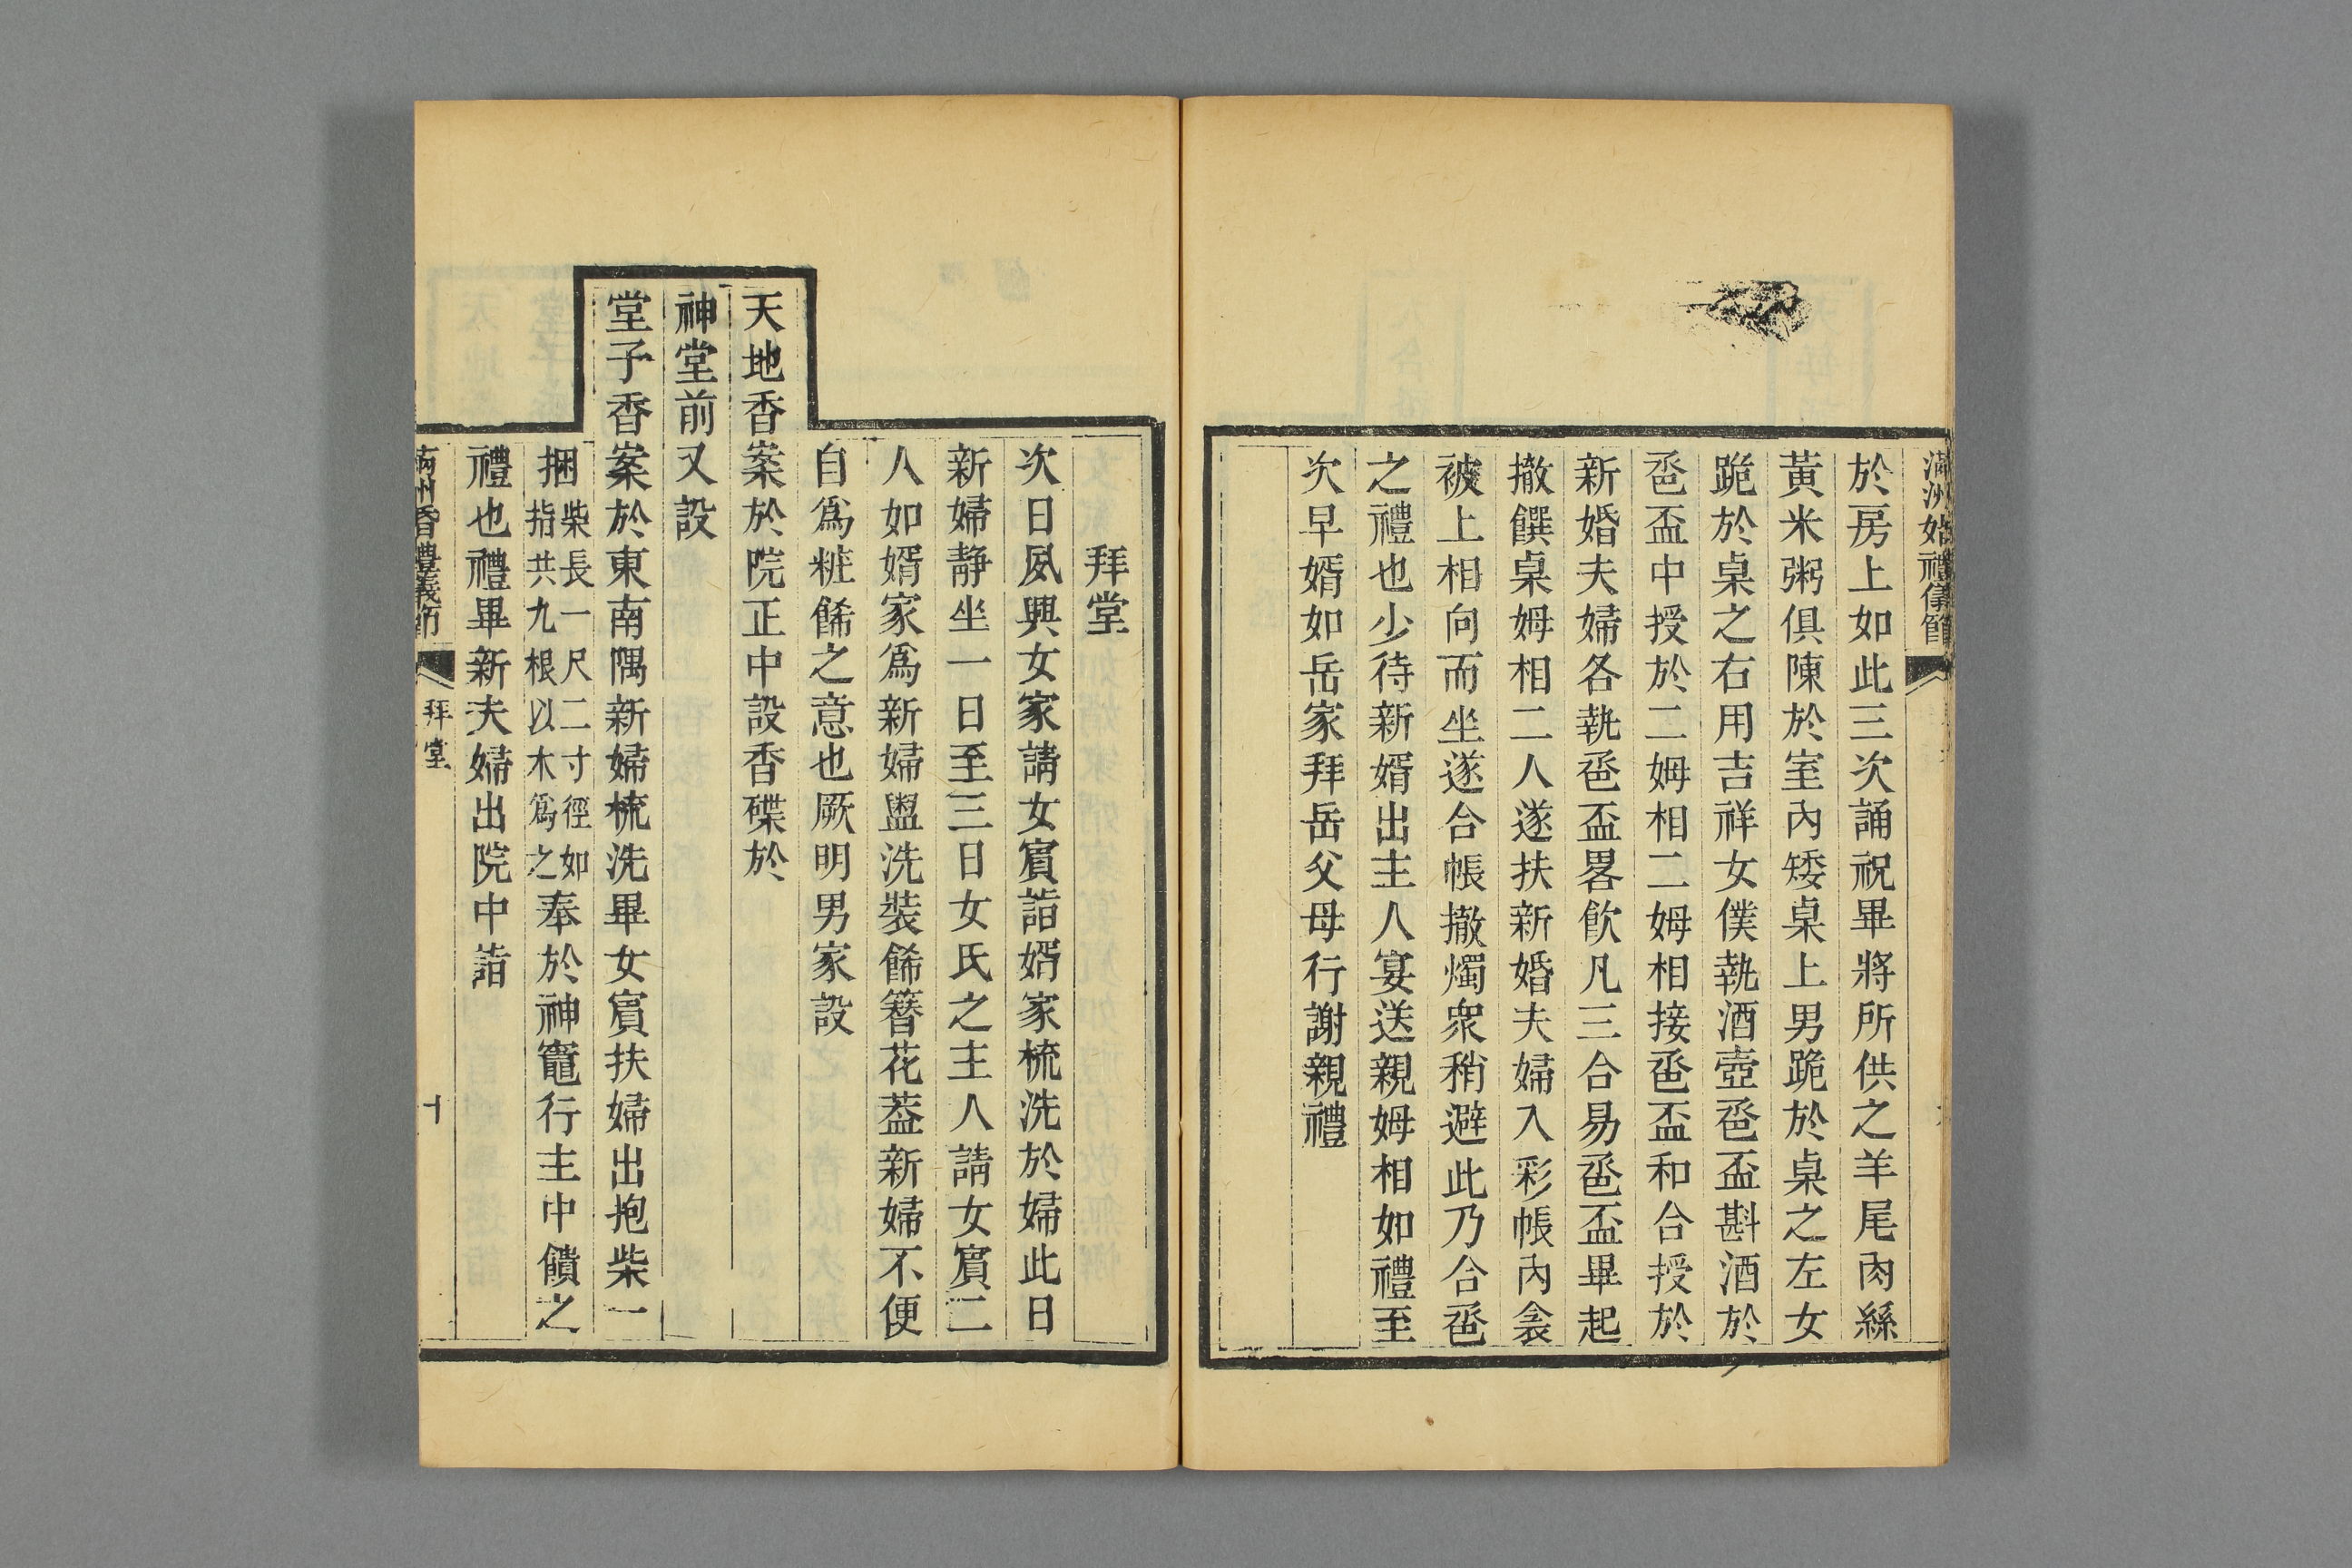 滿洲婚禮儀節
於房上如此三次誦祝畢將所供之羊尾肉絲
黃米粥俱陳於室內矮桌上男跪於桌之左女
跪於桌之右用吉祥女僕執酒壺卺盃斟酒於
卺盃中授於二姆相二姆相接卺盃和合授於
新婚夫婦各執卺盃畧飲凡三合易卺盃畢起
撤饌桌姆相二人遂扶新婚夫婦入彩帳內衾
被上相向而坐遂合帳撤燭衆稍避此乃合卺
之禮也少待新婿出主人宴送親姆相如禮至
次早婿如岳家拜岳父母行謝親禮
拜堂
次日夙興女家請女賓詣婿家梳洗於婦此日
新婦靜坐一日至三日女氏之主人請女賓二
人如婿家爲新婦盥洗裝餙簪花葢新婦不便
自爲粧餙之意也厥明男家設
天地香案於院正中設香碟於
神堂前又設
堂子香案於東南隅新婦梳洗畢女賓扶婦出抱柴一
捆柴長一尺二寸徑如指共九根以木爲之奉於神竈行主中饋之
禮也禮畢新夫婦出院中詣
滿洲婚禮儀節 拜堂 十